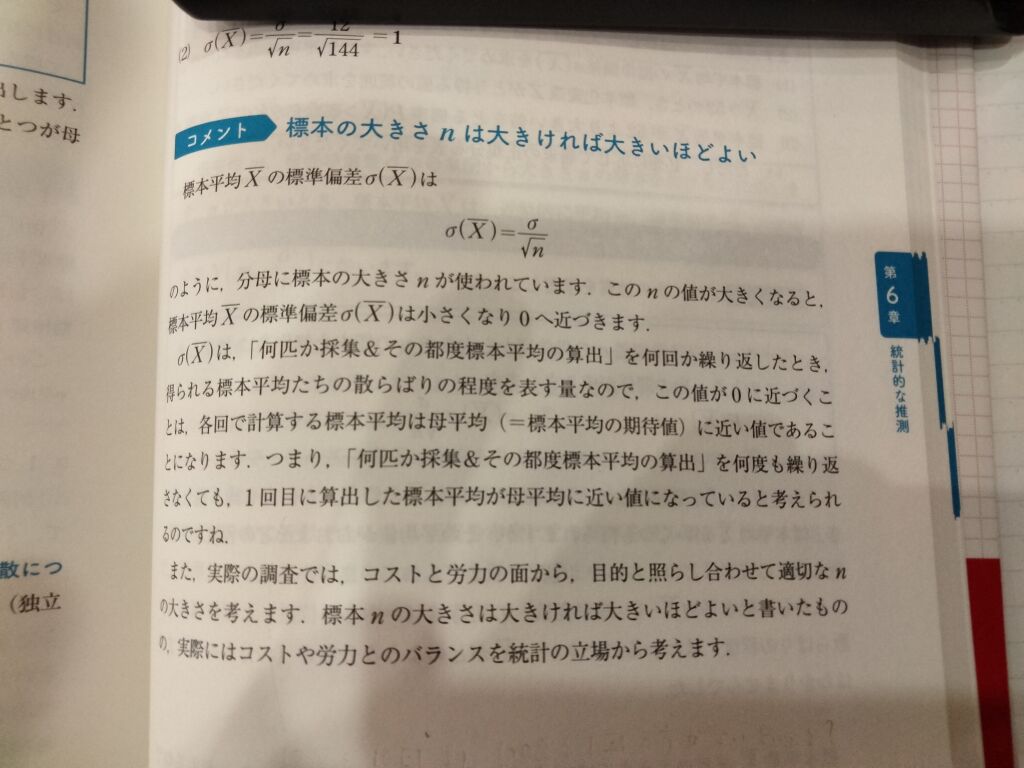 出します.
とつが母
散につ
(独立
(2) σ(X̄)=σ/√n=12/√144=1
コメント 標本の大きさ n は大きければ大きいほどよい
標本平均 X̄ の標準偏差 σ(X̄) は
σ(X̄)=σ/√n
のように，分母に標本の大きさ n が使われています．この n の値が大きくなると，
標本平均 X̄ の標準偏差 σ(X̄) は小さくなり 0 へ近づきます．
σ(X̄) は，「何匹か採集＆その都度標本平均の算出」を何回か繰り返したとき，
得られる標本平均たちの散らばりの程度を表す量なので，この値が 0 に近づくこ
とは，各回で計算する標本平均は母平均（＝標本平均の期待値）に近い値であるこ
とになります．つまり，「何匹か採集＆その都度標本平均の算出」を何度も繰り返
さなくても，1 回目に算出した標本平均が母平均に近い値になっていると考えられ
るのですね．
また，実際の調査では，コストと労力の面から，目的と照らし合わせて適切な n
の大きさを考えます．標本 n の大きさは大きければ大きいほどよいと書いたもの
の，実際にはコストや労力とのバランスを統計の立場から考えます．
第
6
章
統計的な推測